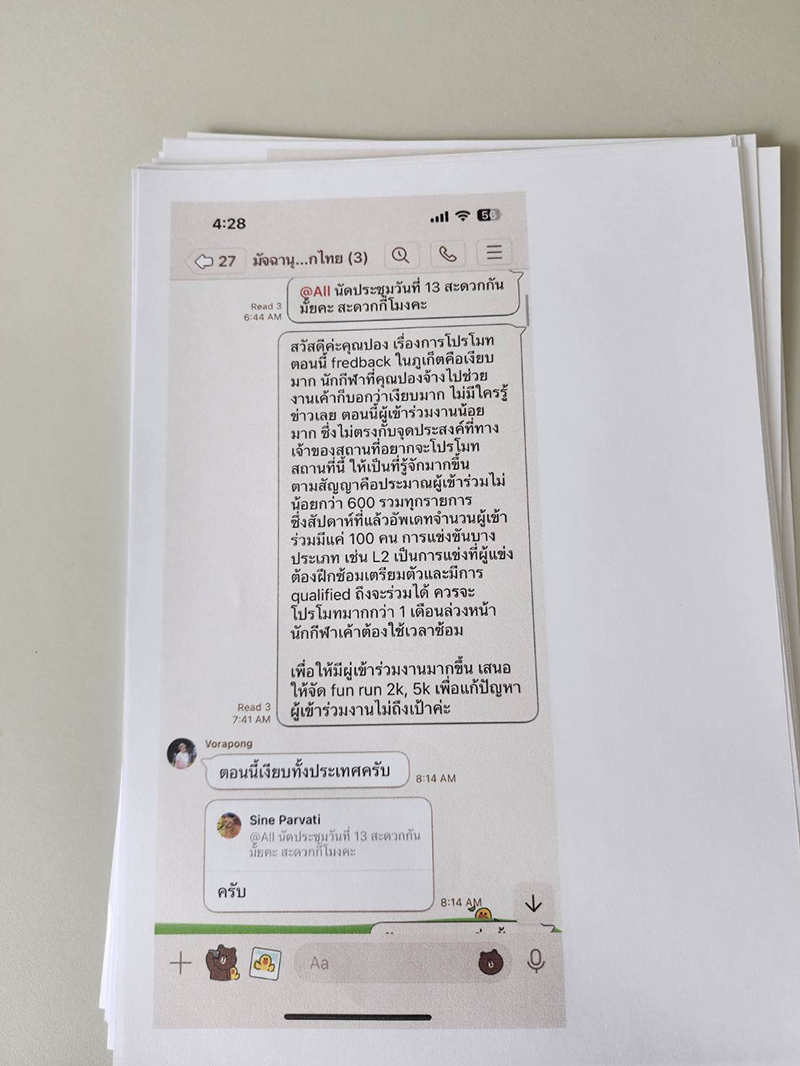 4:28
56
27 มัจฉานุ...กไทย (3)
@All นัดประชุมวันที่ 13 สะดวกกัน
มั้ยคะ สะดวกกี่โมงคะ
Read 3
6:44 AM
สวัสดีค่ะคุณปอง เรื่องการโปรโมท
ตอนนี้ fredback ในภูเก็ตคือเงียบ
มาก นักกีฬาที่คุณปองจ้างไปช่วย
งานเค้าก็บอกว่าเงียบมาก ไม่มีใครรู้
ข่าวเลย ตอนนี้ผู้เข้าร่วมงานน้อย
มาก ซึ่งไม่ตรงกับจุดประสงค์ที่ทาง
เจ้าของสถานที่อยากจะโปรโมท
สถานที่นี้ ให้เป็นที่รู้จักมากขึ้น
ตามสัญญาคือประมาณผู้เข้าร่วมไม่
น้อยกว่า 600 รวมทุกรายการ
ซึ่งสัปดาห์ที่แล้วอัพเดทจำนวนผู้เข้า
ร่วมมีแค่ 100 คน การแข่งขันบาง
ประเภท เช่น L2 เป็นการแข่งที่ผู้แข่ง
ต้องฝึกซ้อมเตรียมตัวและมีการ
qualified ถึงจะร่วมได้ ควรจะ
โปรโมทมากกว่า 1 เดือนล่วงหน้า
นักกีฬาเค้าต้องใช้เวลาซ้อม
เพื่อให้มีผู่เข้าร่วมงานมากขึ้น เสนอ
ให้จัด fun run 2k, 5k เพื่อแก้ปัญหา
ผู้เข้าร่วมงานไม่ถึงเป้าค่ะ
Read 3
7:41 AM
Vorapong
ตอนนี้เงียบทั้งประเทศครับ
8:14 AM
Sine Parvati
@All นัดประชุมวันที่ 13 สะดวกกัน
มั้ยคะ สะดวกกี่โมงคะ
ครับ
8:14 AM
Aa